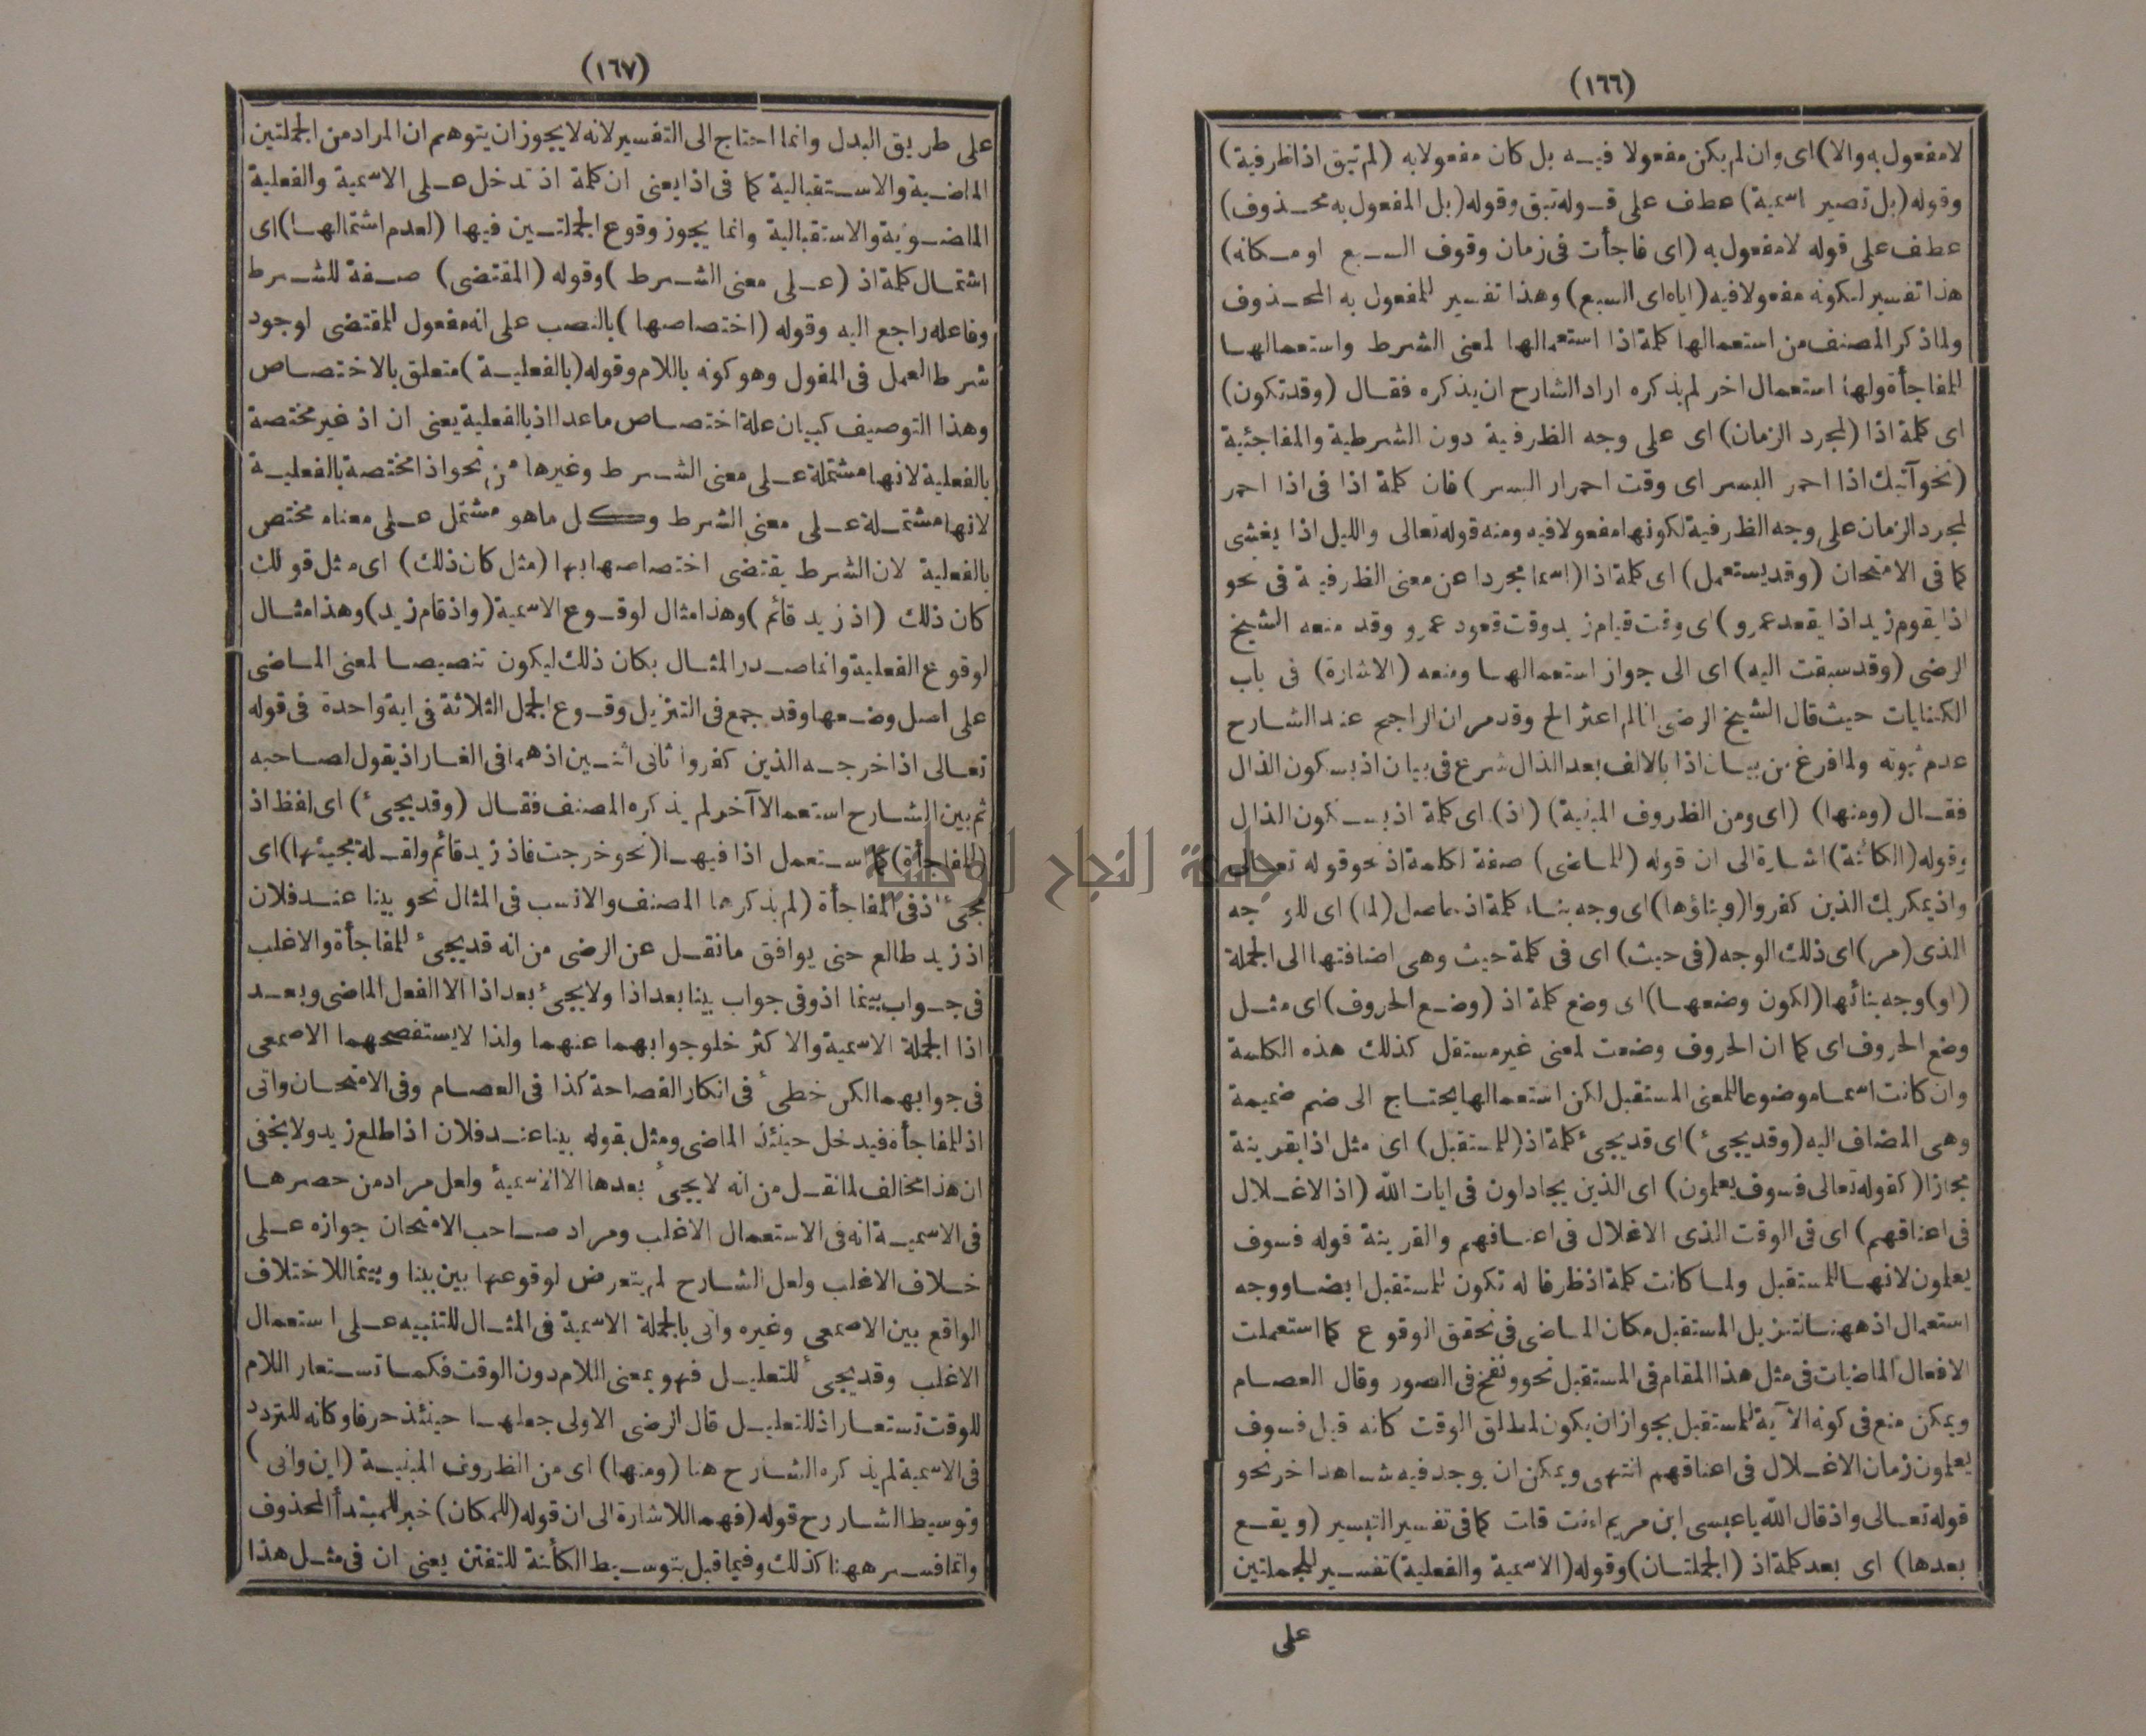 (١٦٦)
لا مفعول به والا) اى وان لم يكن مفعولا فيه بل كان مفعولا به (لم تبق اذا ظرفية)
وقوله (بل تصير اسمية) عطف على قوله تبق وقوله (بل المفعول به محذوف)
عطف على قوله لا مفعول به (اى فاجأت فى زمان وقوف السبع او مكانه)
هذا تفسير لكونه مفعولا فيه (اياه اى السبع) وهذا تفسير للمفعول به المحذوف
ولما ذكر المصنف من استعمالها كلمة اذا استعمالها لمعنى الشرط واستعمالها
للمفاجأة ولها استعمال اخر لم يذكره اراد الشارح ان يذكره فقال (وقد تكون)
اى كلمة اذا (لمجرد الزمان) اى على وجه الظرفية دون الشرطية والمفاجئية
(نحو آتيك اذا احمر البسر اى وقت احمرار البسر) فان كلمة اذا فى اذا احمر
لمجرد الزمان على وجه الظرفية لكونها مفعولا فيه ومنه قوله تعالى والليل اذا يغشى
كما فى الامتحان (وقد يستعمل) اى كلمة اذا (اسما مجردا عن معنى الظرفية فى نحو
اذا يقوم زيد اذا يقعد عمرو) اى وقت قيام زيد وقت قعود عمرو وقد منعه الشيخ
الرضى (وقد سبقت اليه) اى الى جواز استعمالها ومنعه (الاشارة) فى باب
الكنايات حيث قال الشيخ الرضى انا لم اعثر الخ وقد مر ان الراجح عند الشارح
عدم ثبوته ولما فرغ من بيان اذا بالالف بعد الذال شرع فى بيان اذ بسكون الذال
فقال (ومنها) (اى ومن الظروف المبنية) (اذ) اى كلمة اذ بسكون الذال
وقوله (الكائنة) اشارة الى ان قوله (للماضى) صفة لكلمة اذ نحو قوله تعالى
واذ يمكر بك الذين كفروا (وبناؤها) اى وجه بناء كلمة اذ حاصل (لما) اى للوجه
الذى (مر) اى ذلك الوجه (فى حيث) اى فى كلمة حيث وهى اضافتها الى الجملة
(او) وجه بنائها (لكون وضعها) اى وضع كلمة اذ (وضع الحروف) اى مثل
وضع الحروف اى كما ان الحروف وضعت لمعنى غير مستقل كذلك هذه الكلمة
وان كانت اسما موضوعا للمعنى المستقبل لكن استعمالها يحتاج الى ضم ضميمة
وهى المضاف اليه (وقد يجىء) اى قد يجىء كلمة اذ (للمستقبل) اى مثل اذا بقرينة
مجازا (كقوله تعالى فسوف يعلمون) اى الذين يجادلون فى ايات الله (اذ الاغلال
فى اعناقهم) اى فى الوقت الذى الاغلال فى اعناقهم والقرينة قوله فسوف
يعلمون لانها للمستقبل ولما كانت كلمة اذ ظرفا له تكون للمستقبل ايضا ووجه
استعمال اذ ههنا لتنزيل المستقبل مكان الماضى فى تحقق الوقوع كما استعملت
الافعال الماضيات فى مثل هذا المقام فى المستقبل نحو ونفخ فى الصور وقال العصام
ويمكن منع فى كونه الآية للمستقبل بجواز ان يكون لمطلق الوقت كانه قيل فسوف
يعلمون زمان الاغلال فى اعناقهم انتهى ويمكن ان يوجد فيه شاهد اخر نحو
قوله تعالى واذ قال الله يا عيسى ابن مريم ءانت قلت كما فى تفسير التيسير (ويقع
بعدها) اى بعد كلمة اذ (الجملتان) وقوله (الاسمية والفعلية) تفسير للجملتين
على
(١٦٧)
على طريق البدل وانما احتاج الى التفسير لانه لا يجوز ان يتوهم ان المراد من الجملتين
الماضية والاستقبالية كما فى اذا يعنى ان كلمة اذ تدخل على الاسمية والفعلية
الماضوية والاستقبالية وانما يجوز وقوع الجملتين فيها (لعدم اشتمالها) اى
اشتمال كلمة اذ (على معنى الشرط) وقوله (المقتضى) صفة للشرط
وفاعله راجع اليه وقوله (اختصاصها) بالنصب على انه مفعول المقتضى لوجود
شرط العمل فى المفول وهو كونه باللام وقوله (بالفعلية) متعلق بالاختصاص
وهذا التوصيف كبيان علة اختصاص ما عدا اذ بالفعلية يعنى ان اذ غير مختصة
بالفعلية لانها مشتملة على معنى الشرط وغيرها من نحو اذا مختصة بالفعلية
لانها مشتملة على معنى الشرط وكل ما هو مشتمل على معناه مختص
بالفعلية لان الشرط يقتضى اختصاصها بها (مثل كان ذلك) اى مثل قولك
كان ذلك (اذ زيد قائم) وهذا مثال لوقوع الاسمية (واذ قام زيد) وهذا مثال
لوقوع الفعلية وانما صدر المثال بكان ذلك ليكون تنصيصا لمعنى الماضى
على اصل وضعها وقد جمع فى التنزيل وقوع الجمل الثلاثة فى اية واحدة فى قوله
تعالى اذ اخرجه الذين كفروا ثانى اثنين اذ هما فى الغار اذ يقول لصاحبه
ثم بين الشارح استعمالا آخر لم يذكره المصنف فقال (وقد يجىء) اى لفظ اذ
(للمفاجأة) كما استعمل اذا فيها (نحو خرجت فاذ زيد قائم ولقلة مجيئها) اى
مجىء اذ فى المفاجأة (لم يذكرها المصنف والانسب فى المثال نحو بينا عند فلان
اذ زيد طالع حتى يوافق ما نقل عن الرضى من انه قد يجىء للمفاجأة والاغلب
فى جواب بينما اذ وفى جواب بينا بعد اذا ولا يجىء بعد اذا الا الفعل الماضى وبعد
اذا الجملة الاسمية والاكثر خلو جوابهما عنهما ولذا لا يستفصحهما الاصمعى
فى جوابهما لكن خطىء فى انكار الفصاحة كذا فى العصام وفى الامتحان واتى
اذ للمفاجأة فيدخل حينئذ الماضى ومثل بقوله بينا عند فلان اذا طلع زيد ولا يخفى
ان هذا مخالف لما نقل من انه لا يجىء بعدها الا الاسمية ولعل مراد من حصرها
فى الاسمية انه فى الاستعمال الاغلب ومراد صاحب الامتحان جوازه على
خلاف الاغلب ولعل الشارح لم يتعرض لوقوعها بين بينا وبينما للاختلاف
الواقع بين الاصمعى وغيره واتى بالجملة الاسمية فى المثال للتنبيه على استعمال
الاغلب وقد يجىء للتعليل فهو بمعنى اللام دون الوقت فكما تستعار اللام
للوقت تستعار اذ للتعليل قال الرضى الاولى جعلها حينئذ حرفا وكانه للتردد
فى الاسمية لم يذكره الشارح هنا (ومنها) اى من الظروف المبنية (اين وانى)
وتوسيط الشارح قوله (فهما للاشارة الى ان قوله (للمكان) خبر للمبتدأ المحذوف
وانما فسر ههنا كذلك وفيما قبل بتوسيط الكائنة للتفنن يعنى ان فى مثل هذا
جامعة النجاح الوطنية